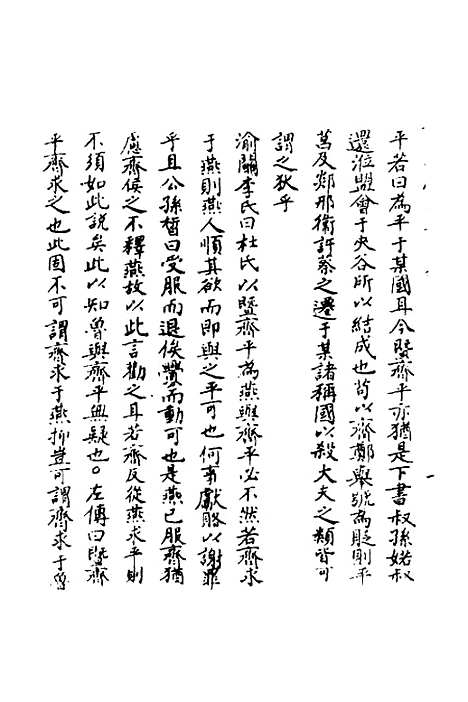 平若曰為平于某國耳今暨齊平亦猶是下書叔孫婼叔
還涖盟會于夾谷所以結成也苟以齊鄭舉號為貶則平
莒及郯邢衛許蔡之遷于某諸稱國以殺大夫之類皆可
謂之狄乎
渝關李氏曰杜氏以暨齊平為燕與齊平必不然若齊求
于燕則燕人順其欲而即與之平可也何事獻賂以謝罪
乎且公孫晳曰受服而退俟釁而動可也是燕已服齊猶
慮齊侯之不釋燕故以此言勸之耳若齊反從燕求平則
不須如此說矣此以知魯與齊平無疑也。左傳曰暨齊
平齊求之也此固不可謂齊求于燕抑豈可謂齊求于魯